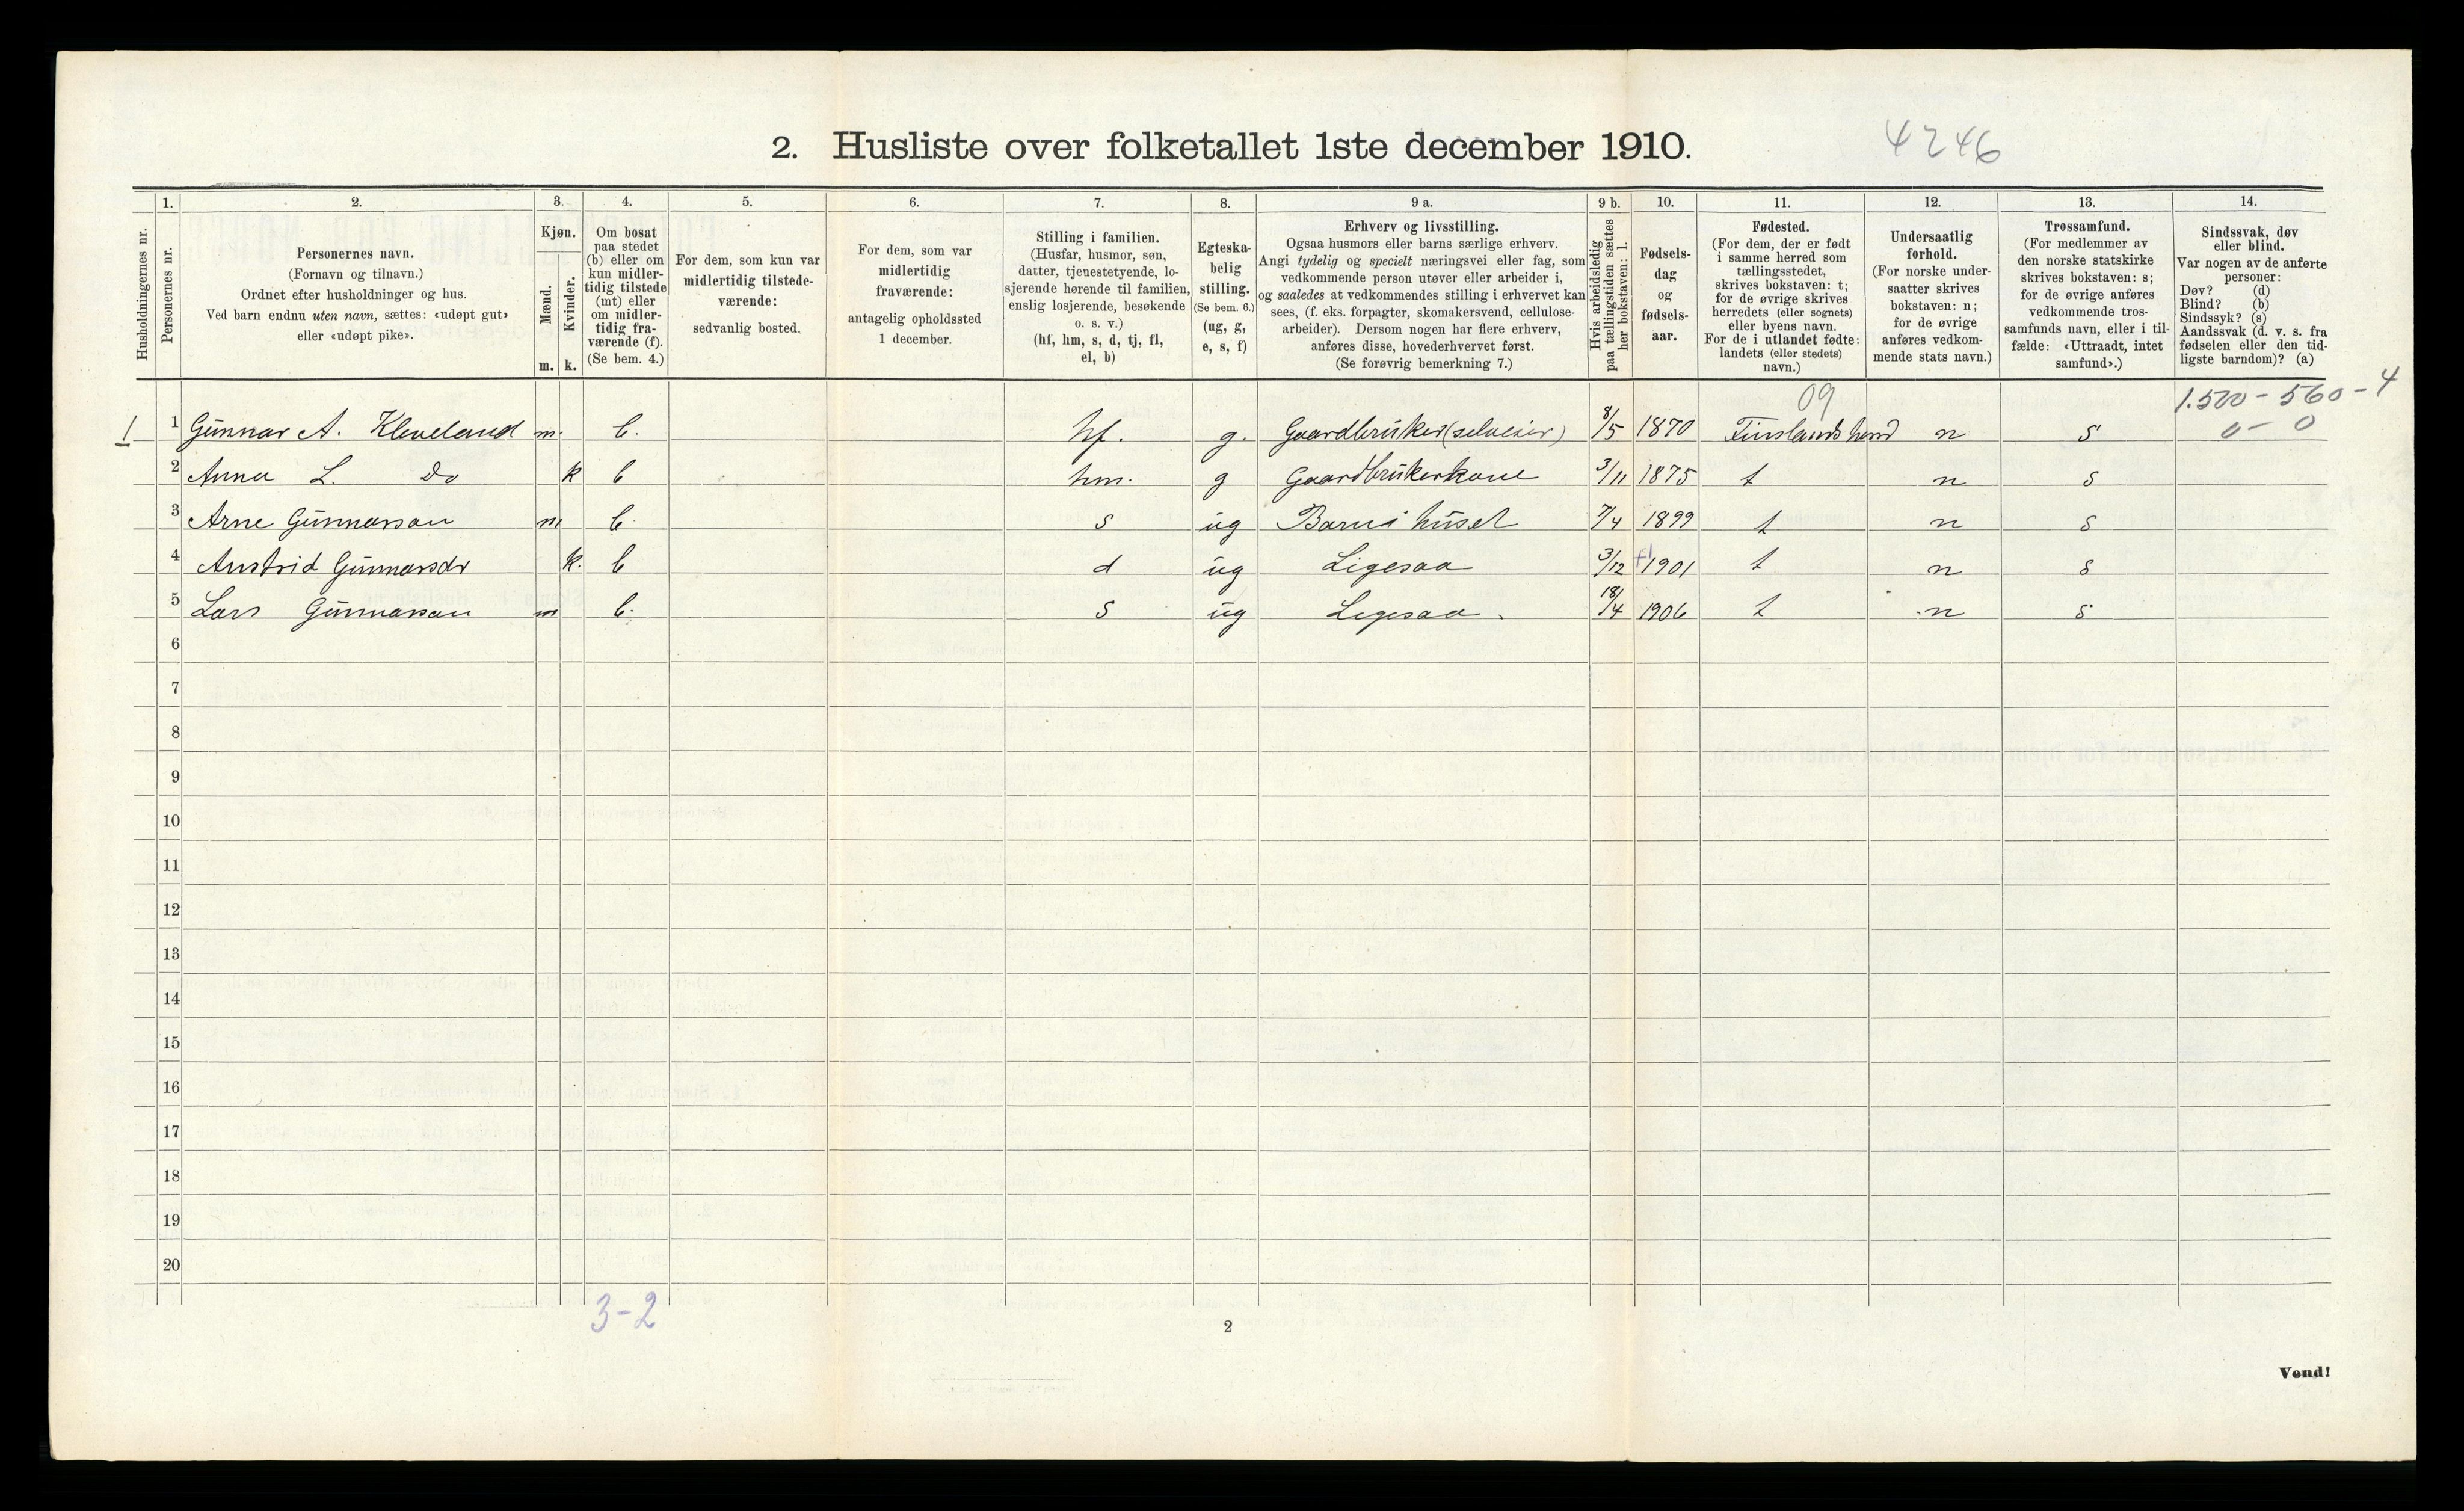 2. Husliste over folketallet 1ste december 1910.
4246
Husholdningernes nr.
1.
Personernes nr.
2.
Personernes navn.
(Fornavn og tilnavn.)
Ordnet efter husholdninger og hus.
Ved barn endnu uten navn, sættes: «udøpt gut»
eller «udøpt pike».
3.
Kjøn.
Mænd.
Kvinder.
m. k.
4.
Om bosat
paa stedet
(b) eller om
kun midler-
tidig tilstede
(mt) eller
om midler-
tidig fra-
værende (f).
(Se bem. 4.)
5.
For dem, som kun var
midlertidig tilstede-
værende:
sedvanlig bosted.
6.
For dem, som var
midlertidig
fraværende:
antagelig opholdssted
1 december.
7.
Stilling i familien.
(Husfar, husmor, søn,
datter, tjenestetyende, lo-
sjerende hørende til familien,
enslig losjerende, besøkende
o. s. v.)
(hf, hm, s, d, tj, fl,
el, b)
8.
Egteska-
belig
stilling.
(Se bem. 6.)
(ug, g,
e, s, f)
9 a.
Erhverv og livsstilling.
Ogsaa husmors eller barns særlige erhverv.
Angi tydelig og specielt næringsvei eller fag, som
vedkommende person utøver eller arbeider i,
og saaledes at vedkommendes stilling i erhvervet kan
sees, (f. eks. forpagter, skomakersvend, cellulose-
arbeider). Dersom nogen har flere erhverv,
anføres disse, hovederhvervet først.
(Se forøvrig bemerkning 7.)
9 b.
Hvis arbeidsledig
paa tællingstiden sættes
her bokstaven: l.
10.
Fødsels-
dag
og
fødsels-
aar.
11.
Fødested.
(For dem, der er født
i samme herred som
tællingsstedet,
skrives bokstaven: t;
for de øvrige skrives
herredets (eller sognets)
eller byens navn.
For de i utlandet fødte:
landets (eller stedets)
navn.)
12.
Undersaatlig
forhold.
(For norske under-
saatter skrives
bokstaven: n;
for de øvrige
anføres vedkom-
mende stats navn.)
13.
Trossamfund.
(For medlemmer av
den norske statskirke
skrives bokstaven: s;
for de øvrige anføres
vedkommende tros-
samfunds navn, eller i til-
fælde: «Uttraadt, intet
samfund».)
14.
Sindssvak, døv
eller blind.
Var nogen av de anførte
personer:
Døv? (d)
Blind? (b)
Sindssyk? (s)
Aandssvak (d. v. s. fra
fødselen eller den tid-
ligste barndom)? (a)
09
1.500 - 560 - 4
0 - 0
1 1 Gunnar A. Kleveland m. b. hf. g. Gaardbruker (selveier) 8/5 1870 Finslands herd n s
2 Anna L. Do k b hm. g Gaardbrukerkone 3/11 1875 t n s
3 Arne Gunnarson m b s ug Barn i huset 7/4 1899 t n s
4 Anstrid Gunnarsdr k. b d ug Ligesaa 3/12 1901 t n s
5 Lars Gunnarson m b. s ug Ligesaa. 18/4 1906 t n s
6
7
8
9
10
11
12
13
14
15
16
17
18
19
20
3-2
2
Vend!